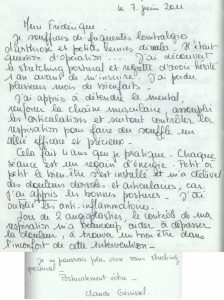 le 7 juin 2011
Merci Frédérique
Je souffrais de fréquentes lombalgies
d'arthrose et petites hernies discales. Il était
question d'opération... J'ai découvert
le stretching postural et regrette d'avoir hésité
1 an avant de m'inscrire. J'ai perdu
plusieurs mois de bienfaits.
J'ai appris à détendre le mental,
renforcer la chaîne musculaire, assouplir
les articulations et surtout contrôler la
respiration pour faire du souffle un
allié efficace et précieux.
Cela fait 4 ans que je pratique. Chaque
séance est un regain d'énergie. Petit à
petit le bien être s'est installé et m'a délivré
des douleurs dorsales et articulaires, car
j'ai appris les bonnes postures. J'ai
oublié les anti-inflammatoires.
Lors de 2 angioplasties, le contrôle de ma
respiration m'a beaucoup aidée à dépasser
la douleur, à trouver un bien être dans
l'inconfort de cette intervention.
Je ne pourrais plus vivre sans stretching
postural
Posturalement vôtre
Claude